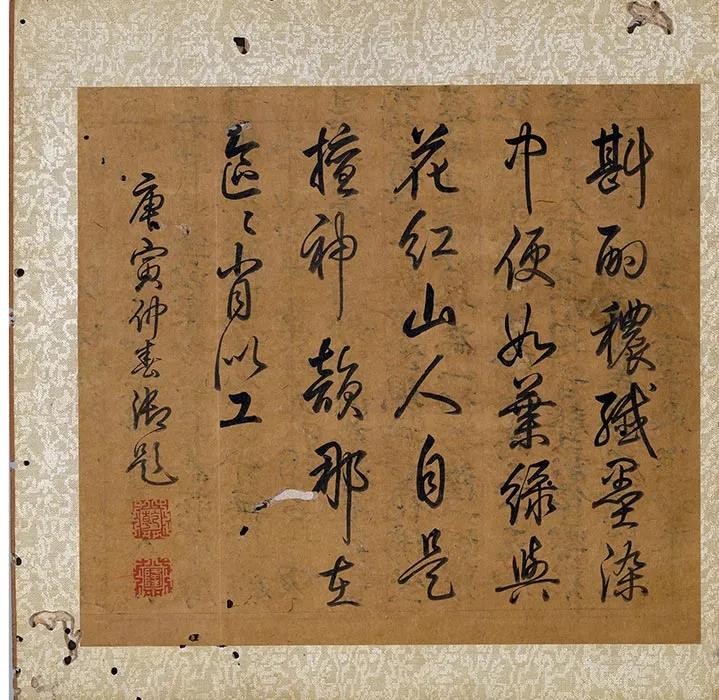 斟酌穠纖墨染
中便如葉綠與
花紅山人自是
擅神韻那在
區〻肖似工
庚寅仲春御題